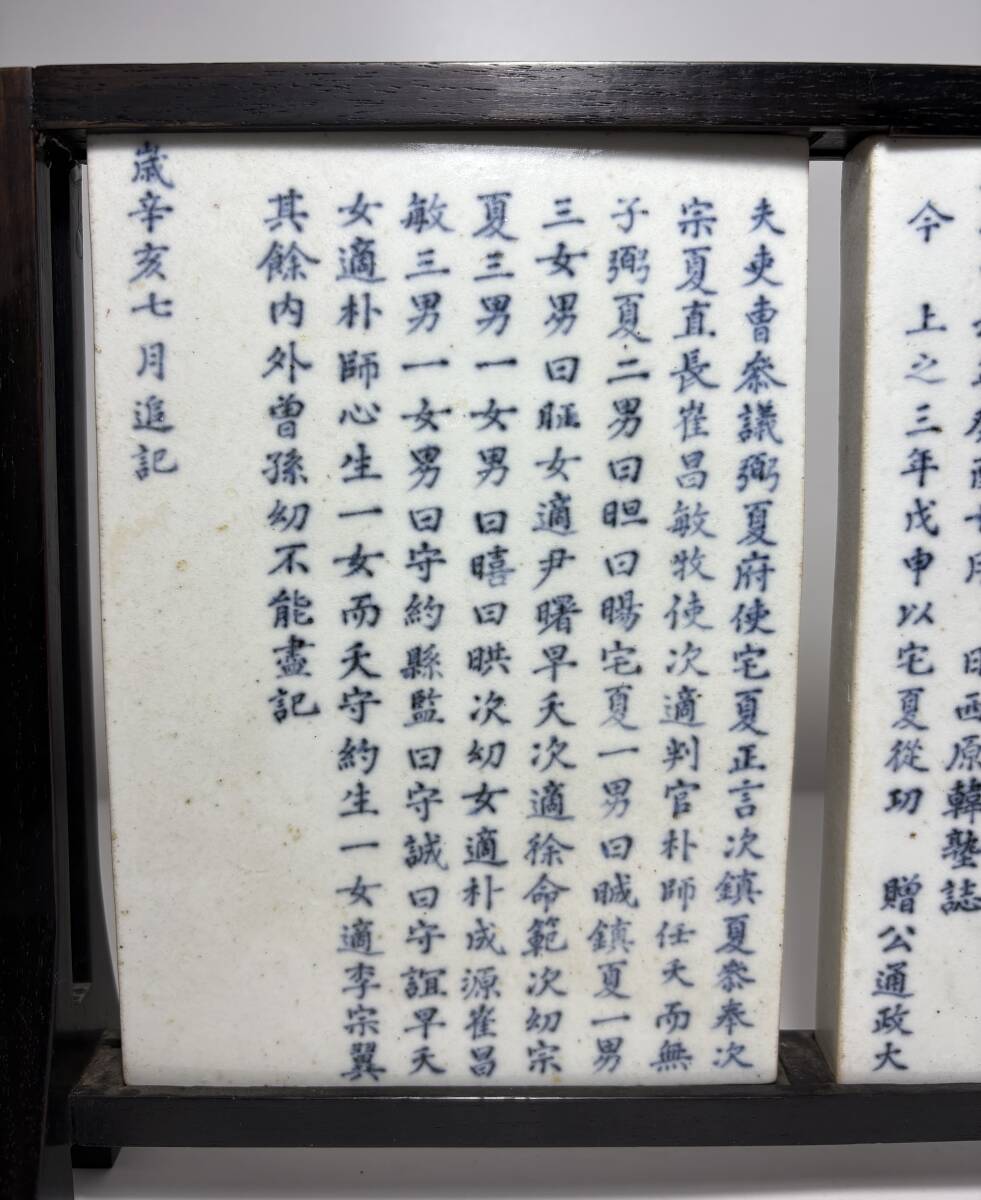 日西原韓塾誌
今 上之三年戊申以宅夏從功 贈公通政大
夫吏曹叅議弼夏府使宅夏正言次鎮夏叅奉次
宗夏直長崔昌敏牧使次適判官朴師任夭而無
子弼夏二男曰曰暘宅夏一男曰晠鎮夏一男
三女男曰女適尹曙早夭次適徐命範次幼宗
夏三男一女男曰暿曰晎次幼女適朴成源崔昌
敏三男一女男曰守約縣監曰守誠曰守誼早夭
女適朴師心生一女而夭守約生一女適李宗翼
其餘內外曾孫幼不能盡記
歲辛亥七月追記